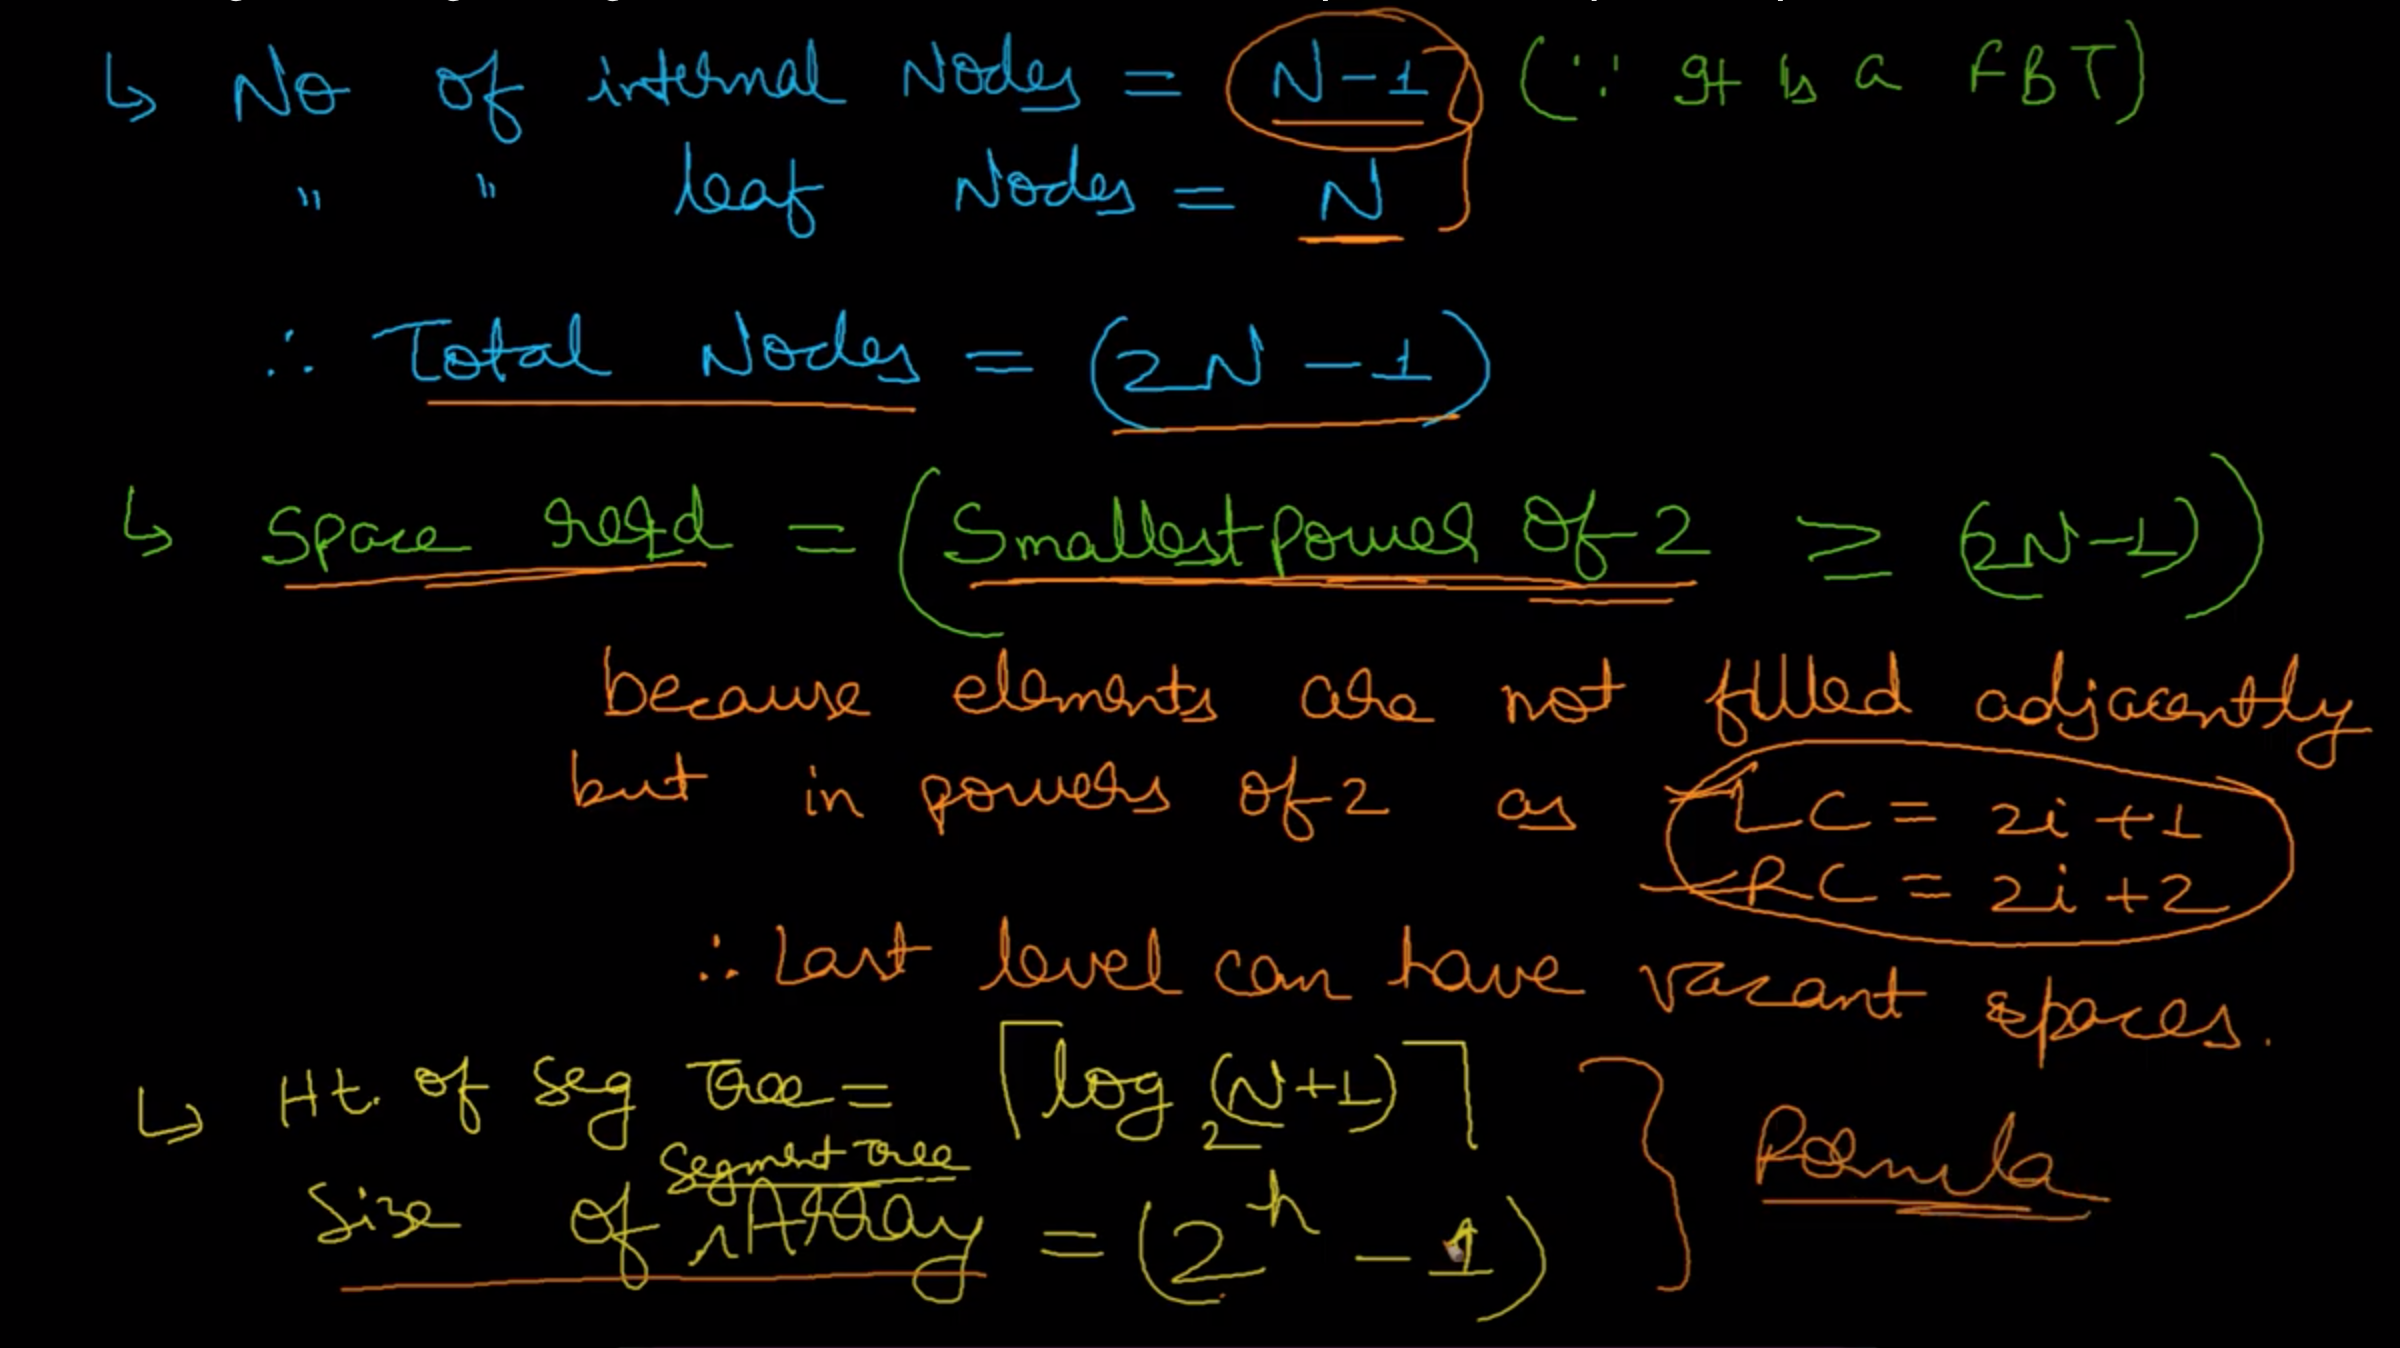 ↳ No of internal Nodes = N-1 (∵ It is a FBT)
" " leaf Nodes = N
∴ Total Nodes = (2N - 1)
↳ Space reqd = (Smallest power of 2 ≥ (2N-1))
because elements are not filled adjacently
but in powers of 2 as LC = 2i +1
RC = 2i +2
∴ Last level can have vacant spaces.
↳ Ht. of Seg Tree = ⌈log₂(N+1)⌉
Segment Tree
Size of Array = (2^h - 1)
Formula